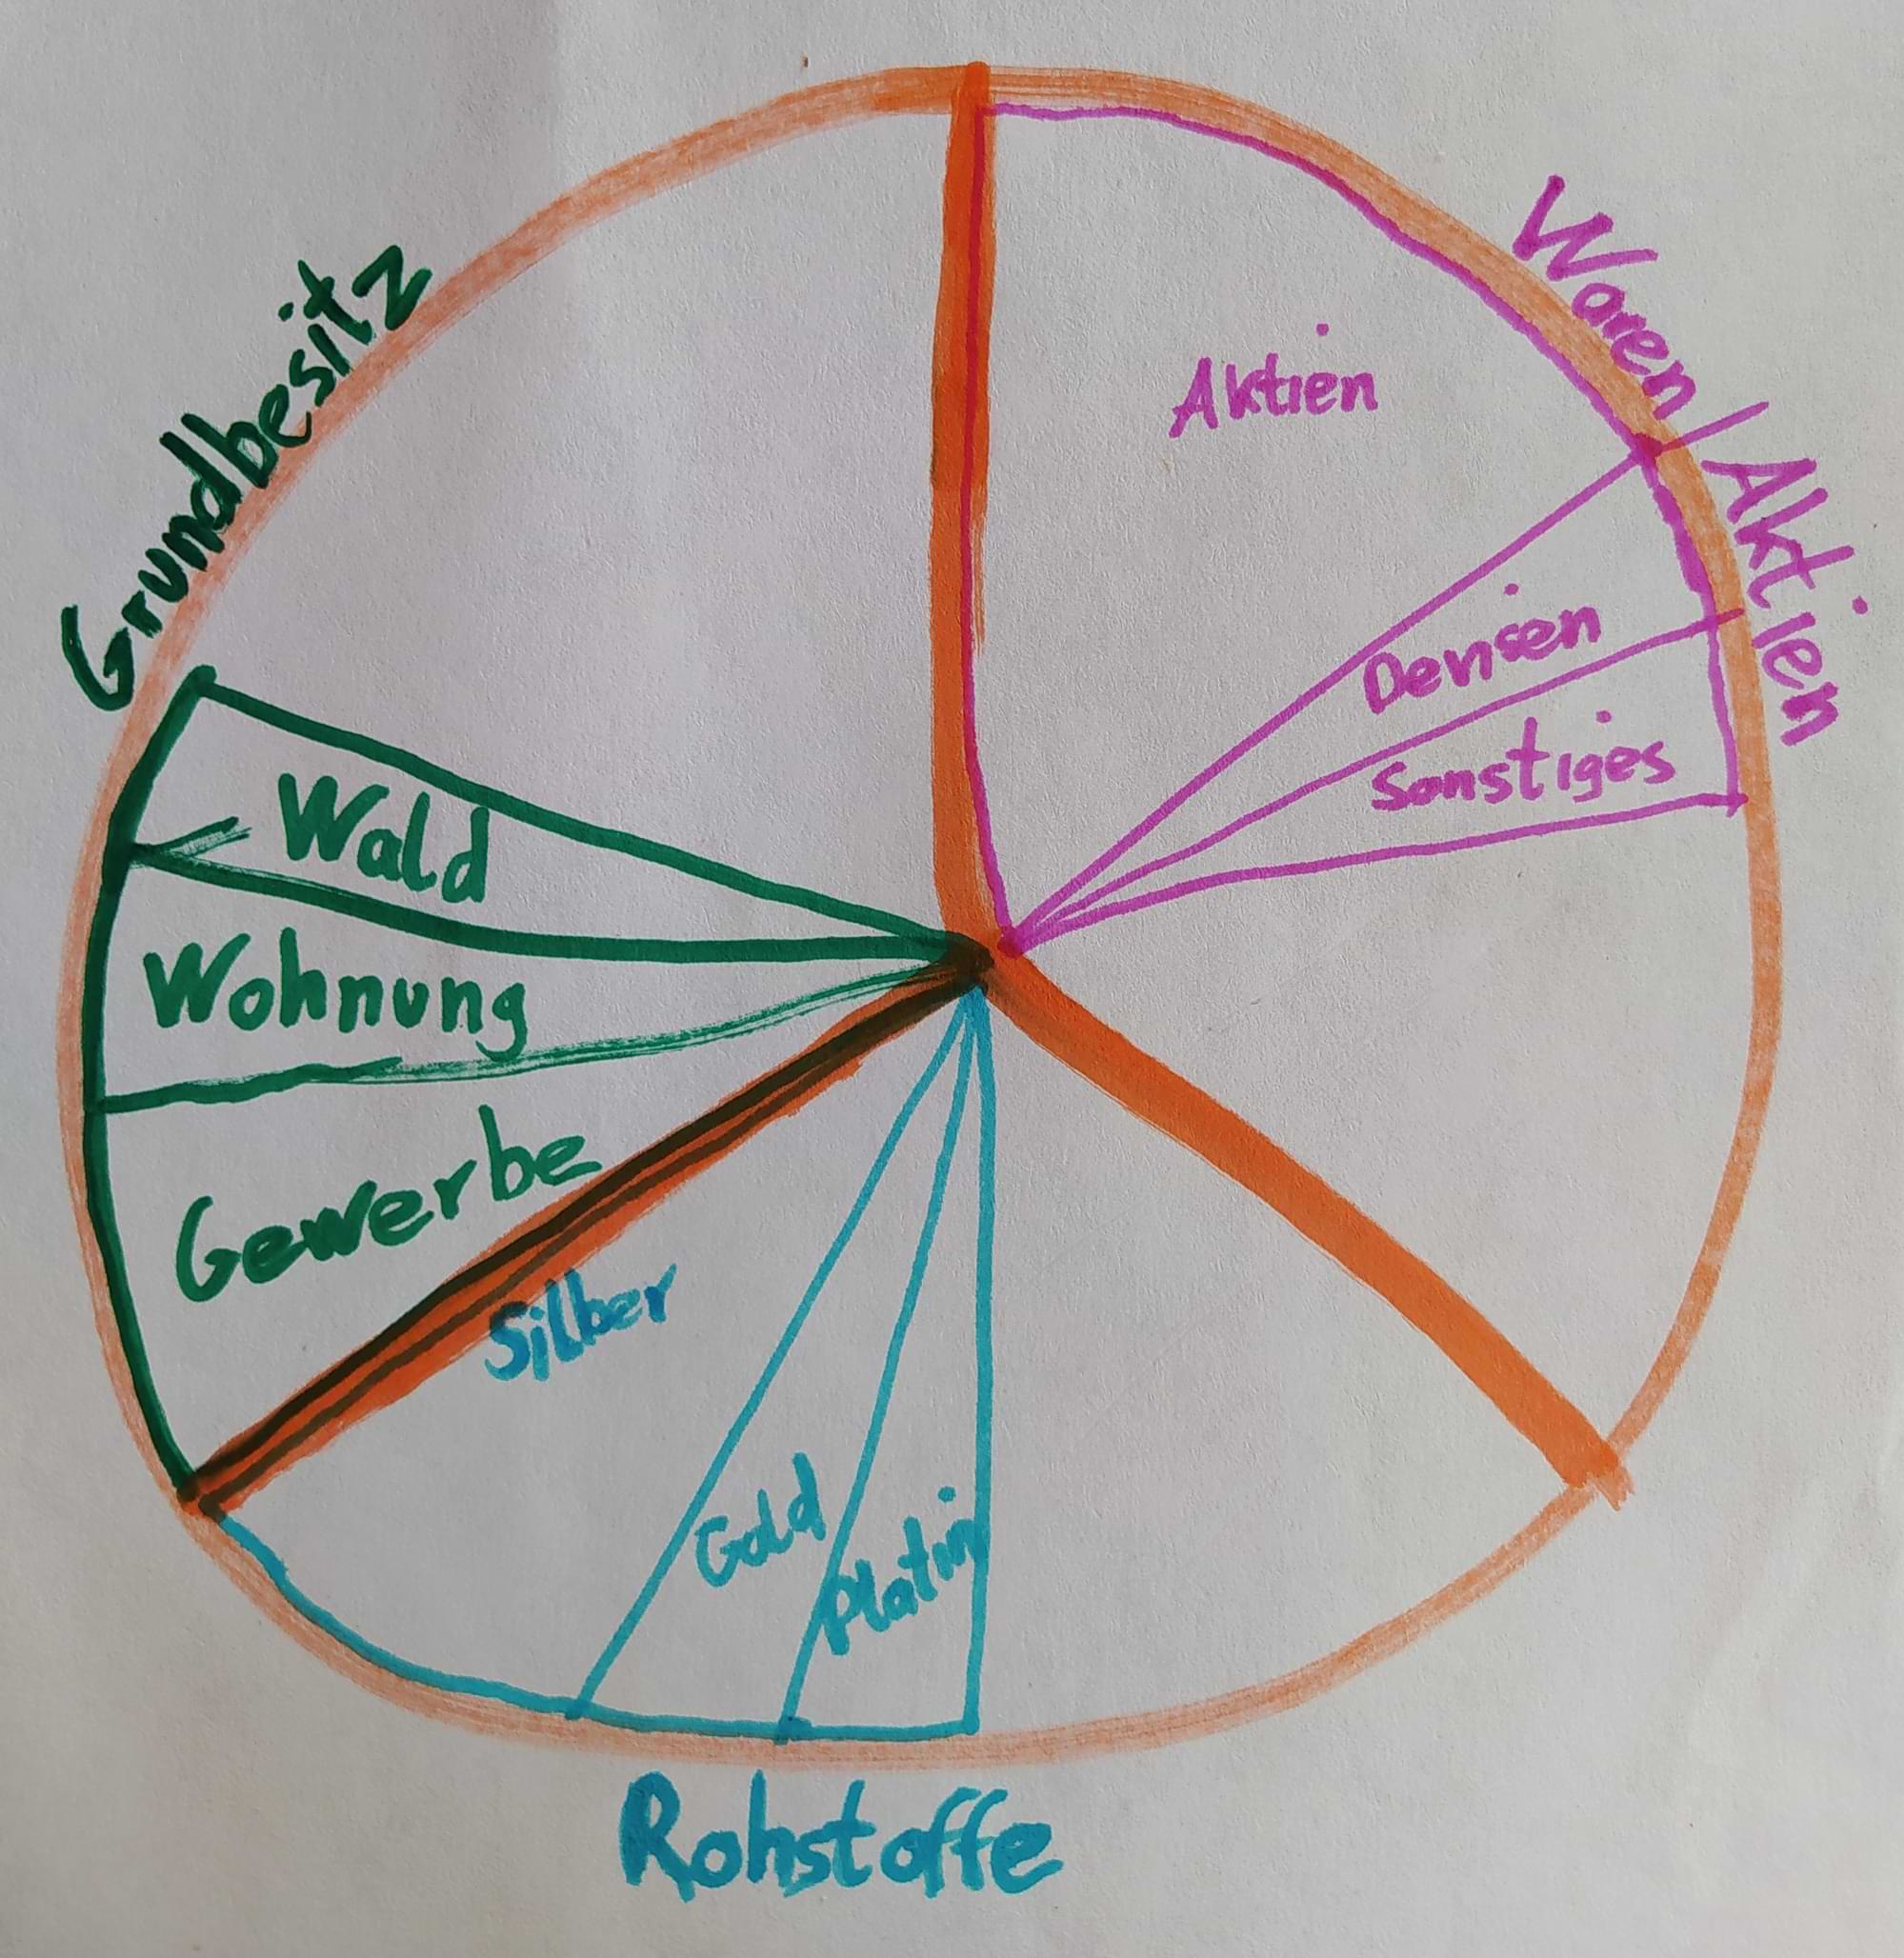 Waren / Aktien
Aktien
Devisen
Sonstiges
Grundbesitz
Wald
Wohnung
Gewerbe
Silber
Gold
Platin
Rohstoffe